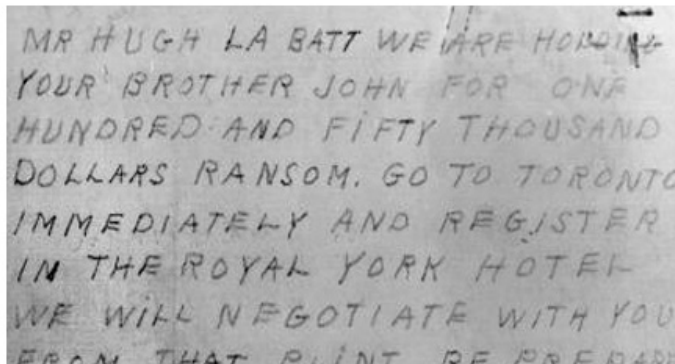 MR HUGH LA BATT WE ARE HOLDING
YOUR BROTHER JOHN FOR ONE
HUNDRED AND FIFTY THOUSAND
DOLLARS RANSOM. GO TO TORONTO
IMMEDIATELY AND REGISTER
IN THE ROYAL YORK HOTEL
WE WILL NEGOTIATE WITH YOU
FROM THAT BE